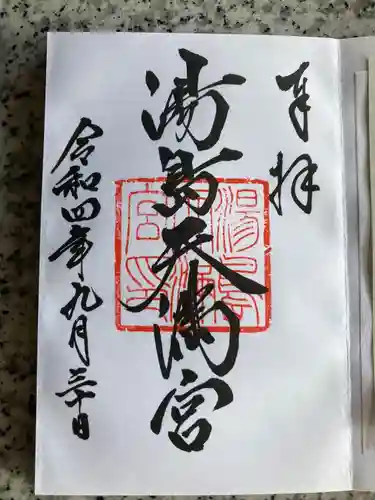 奉拝
湯島天満宮
令和四年九月三十日
湯島
天満
宮印